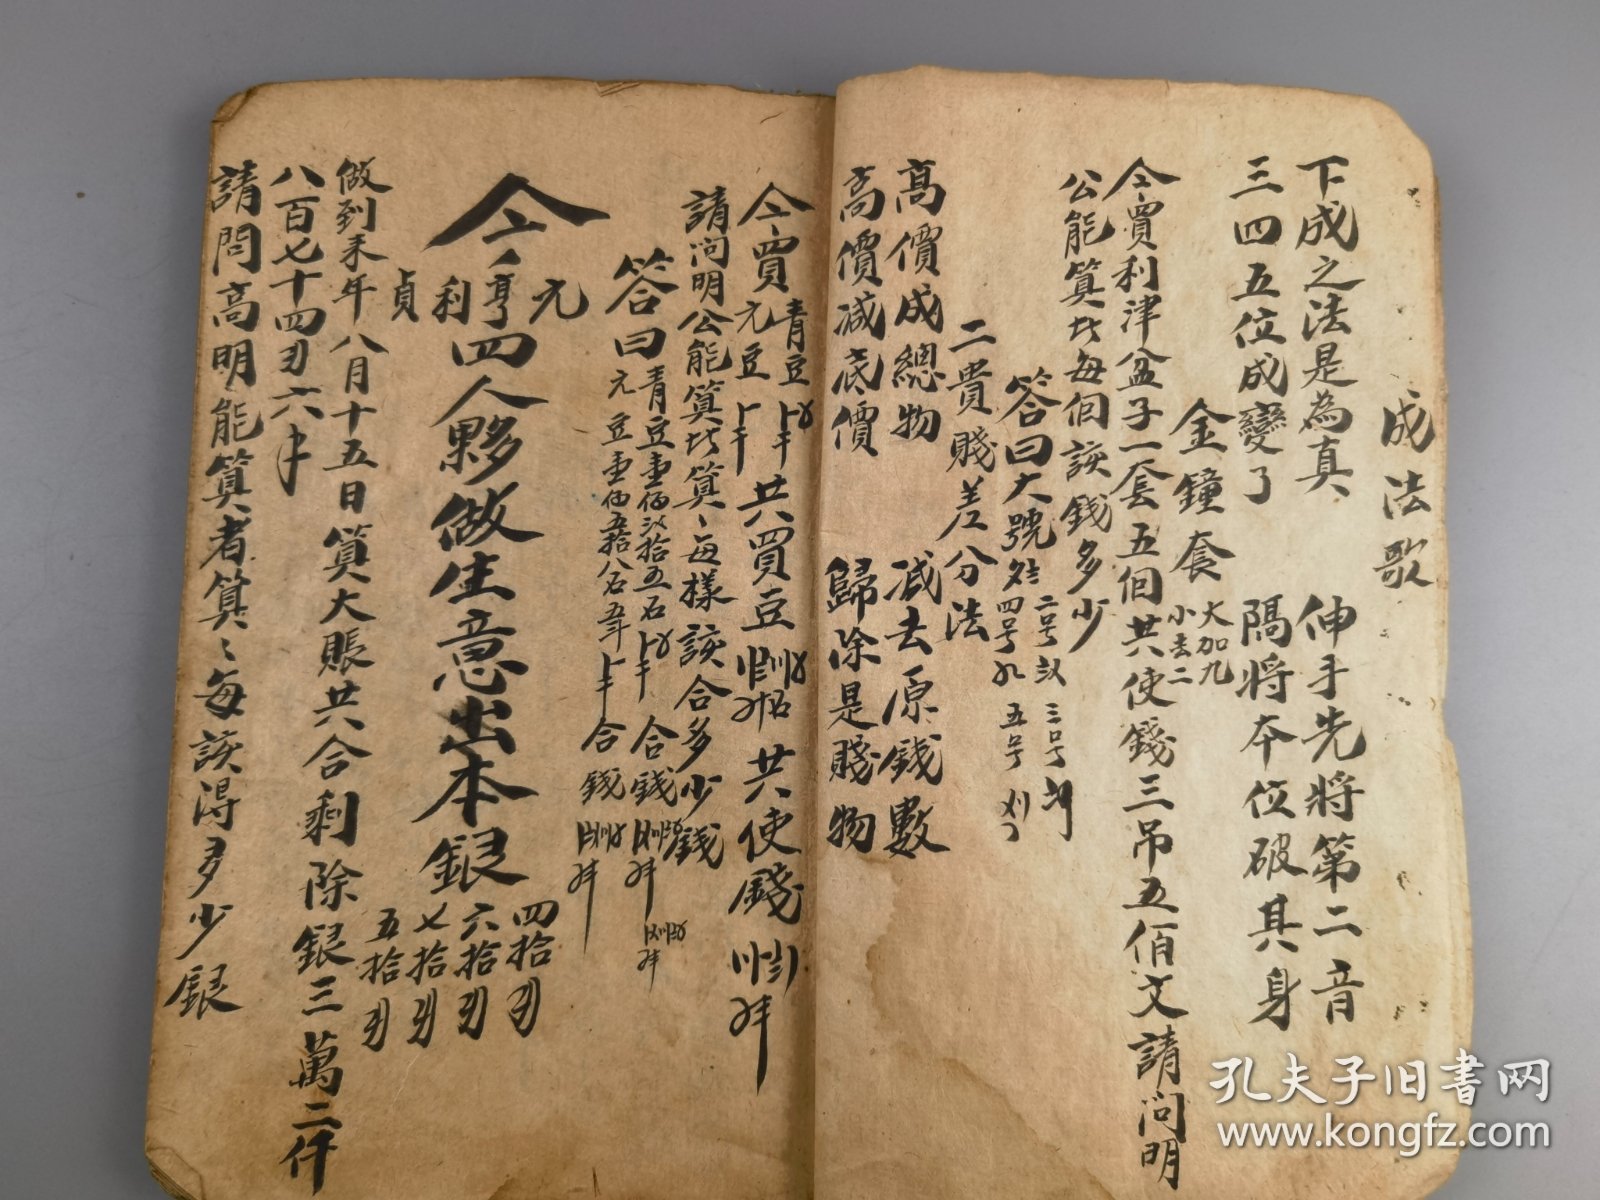 成法歌
下成之法是為真 伸手先將第二音
三四五位成變了 隔將本位破其身
金鐘套 大加九 小去二
今買利津盆子一套五個共使錢三吊五佰文請問明
公能算此每個該錢多少
答曰大號 二号 三号
四号 五号
二貴賤差分法
高價成總物 减去原錢數
高價减底價 歸除是賤物
今買青豆 元豆 共買豆 共使錢
請问明公能算此算々每樣該合多少錢
答曰青豆壹佰 拾五石 合錢
元豆壹佰五拾八石五斗 合錢
今有元亨利貞四人夥做生意出本銀四拾刄 六拾刄 七拾刄 五拾刄
做到来年八月十五日算大賬共合剩除銀三萬二仟
八百七十四刄六
請問高明能算者算々每該得多少銀
孔夫子旧书网
www.kongfz.com